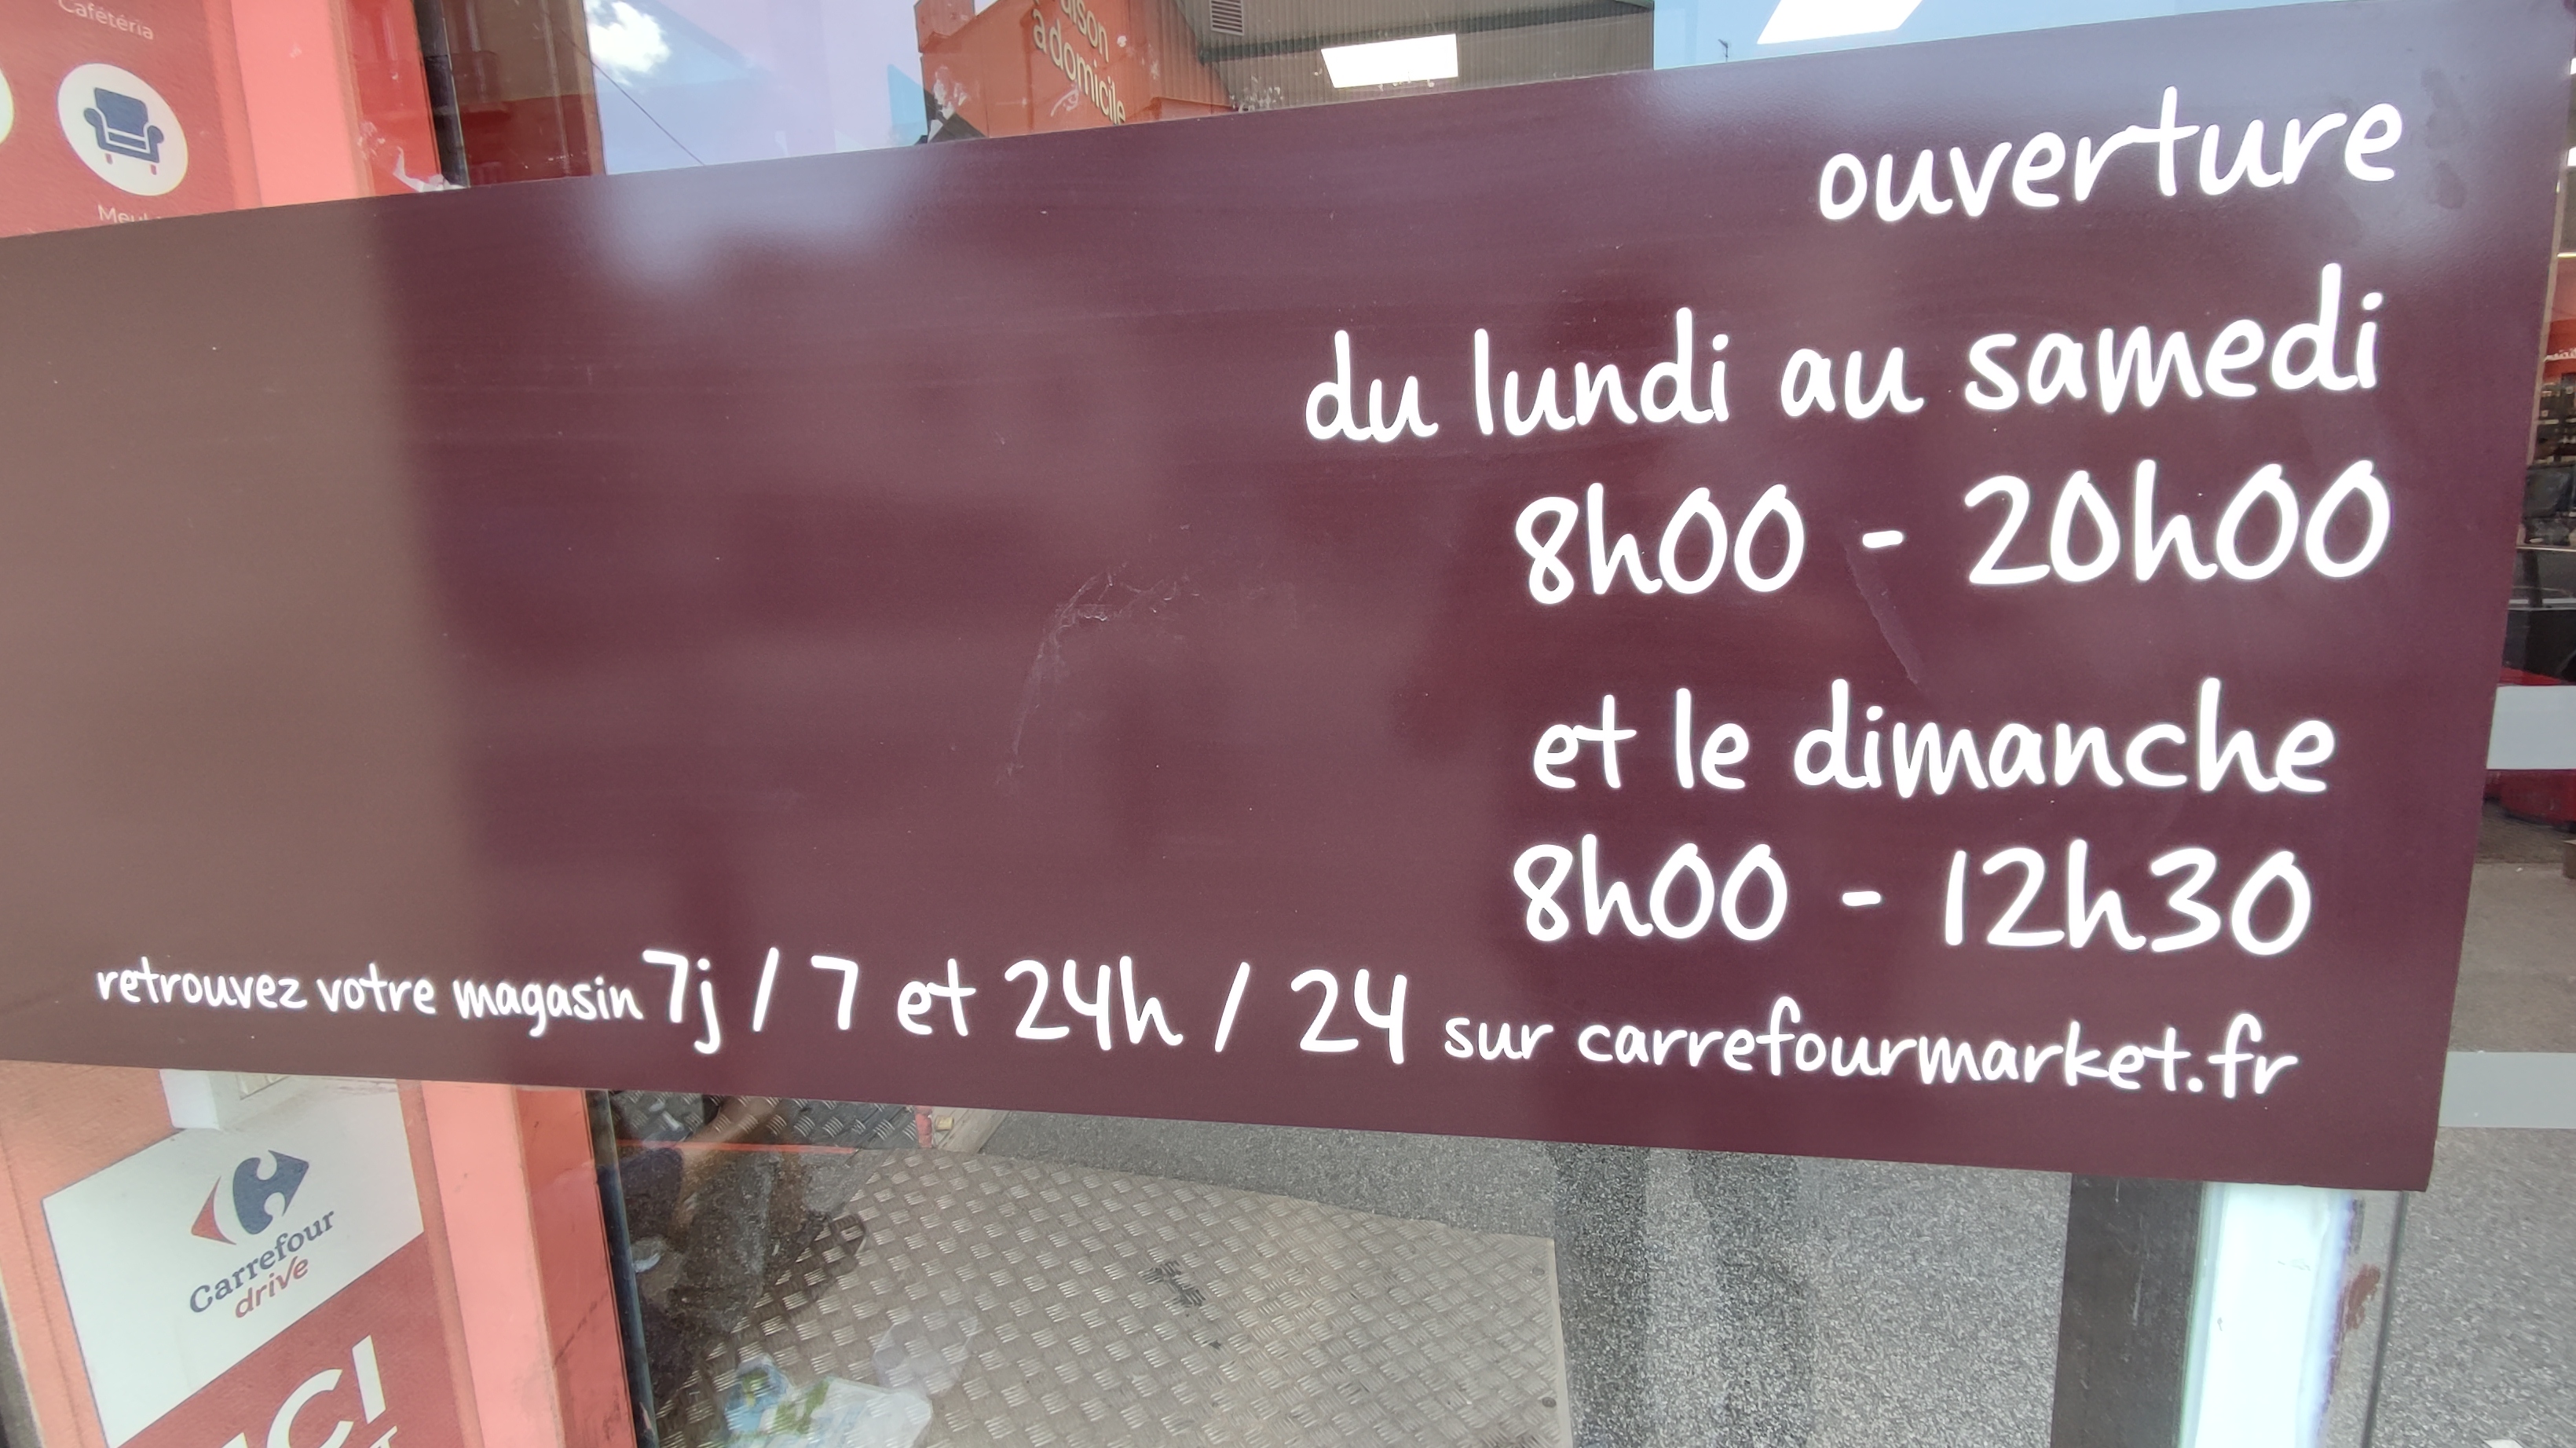 Cafétéria
à domicile
ouverture
du lundi au samedi
8h00 - 20h00
et le dimanche
8h00 - 12h30
retrouvez votre magasin 7j / 7 et 24h / 24 sur carrefourmarket.fr
Carrefour
drive